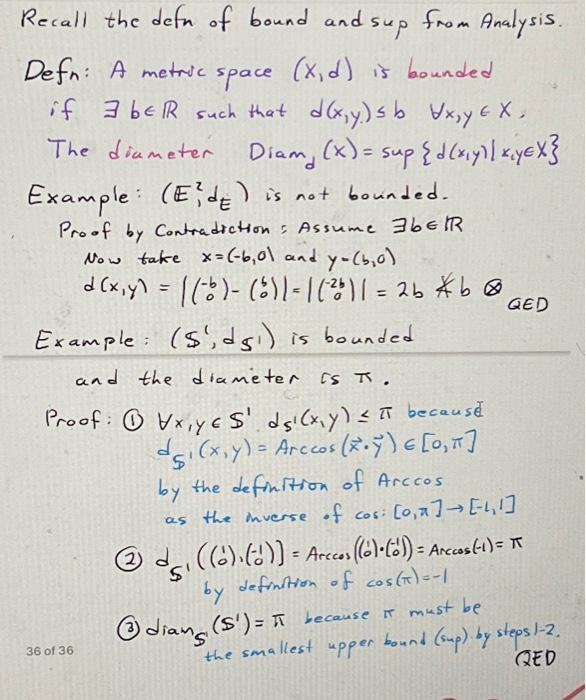 Recall the defn of bound and sup from Analysis.
Defn: A metric space (X,d) is bounded
if ∃ b∈ℝ such that d(x,y)≤b ∀x,y∈X.
The diameter Diam_d(X)=sup{d(x,y)|x,y∈X}
Example: (E²,d_E) is not bounded.
Proof by Contradiction: Assume ∃b∈ℝ
Now take x=(-b,0) and y=(b,0)
d(x,y) = |(-b 0)-(b 0)|=|(-2b 0)| = 2b ≰ b ⊗
QED
Example: (S¹,d_S¹) is bounded
and the diameter is π.
Proof: ① ∀x,y∈S¹ d_S¹(x,y)≤π because
d_S¹(x,y) = Arccos(x⃗·y⃗)∈[0,π]
by the definition of Arccos
as the inverse of cos:[0,π]→[-1,1]
② d_S¹((1 0),(-1 0)) = Arccos((1 0)·(-1 0)) = Arccos(-1) = π
by definition of cos(π)=-1
③ diam_S¹(S¹)=π because π must be
the smallest upper bound (sup) by steps 1-2.
QED
36 of 36